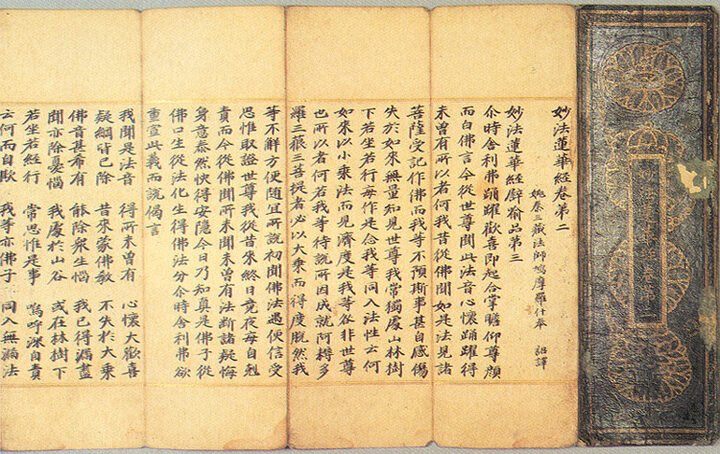 妙法蓮華經卷第二
姚秦三藏法師鳩摩羅什奉 詔譯
妙法蓮華經譬喻品第三
尒時舍利弗踊躍歡喜即起合掌瞻仰尊顏
而白佛言今從世尊聞此法音心懷踊躍得
未曾有所以者何我昔從佛聞如是法見諸
菩薩受記作佛而我等不預斯事甚自感傷
失於如來無量知見世尊我常獨處山林樹
下若坐若行每作是念我等同入法性云何
如來以小乘法而見濟度是我等咎非世尊
也所以者何若我等待說所因成就阿耨多
羅三藐三菩提者必以大乘而得度脫然我
等不解方便隨宜所說初聞佛法遇便信受
思惟取證世尊我從昔來終日竟夜每自剋
責而今從佛聞所未聞未曾有法斷諸疑悔
身意泰然快得安隱今日乃知真是佛子從
佛口生從法化生得佛法分尒時舍利弗欲
重宣此義而說偈言
我聞是法音 得所未曾有 心懷大歡喜
疑網皆已除 昔來蒙佛教 不失於大乘
佛音甚希有 能除衆生惱 我已得漏盡
聞亦除憂惱 我處於山谷 或在林樹下
若坐若經行 常思惟是事 嗚呼深自責
云何而自欺 我等亦佛子 同入無漏法